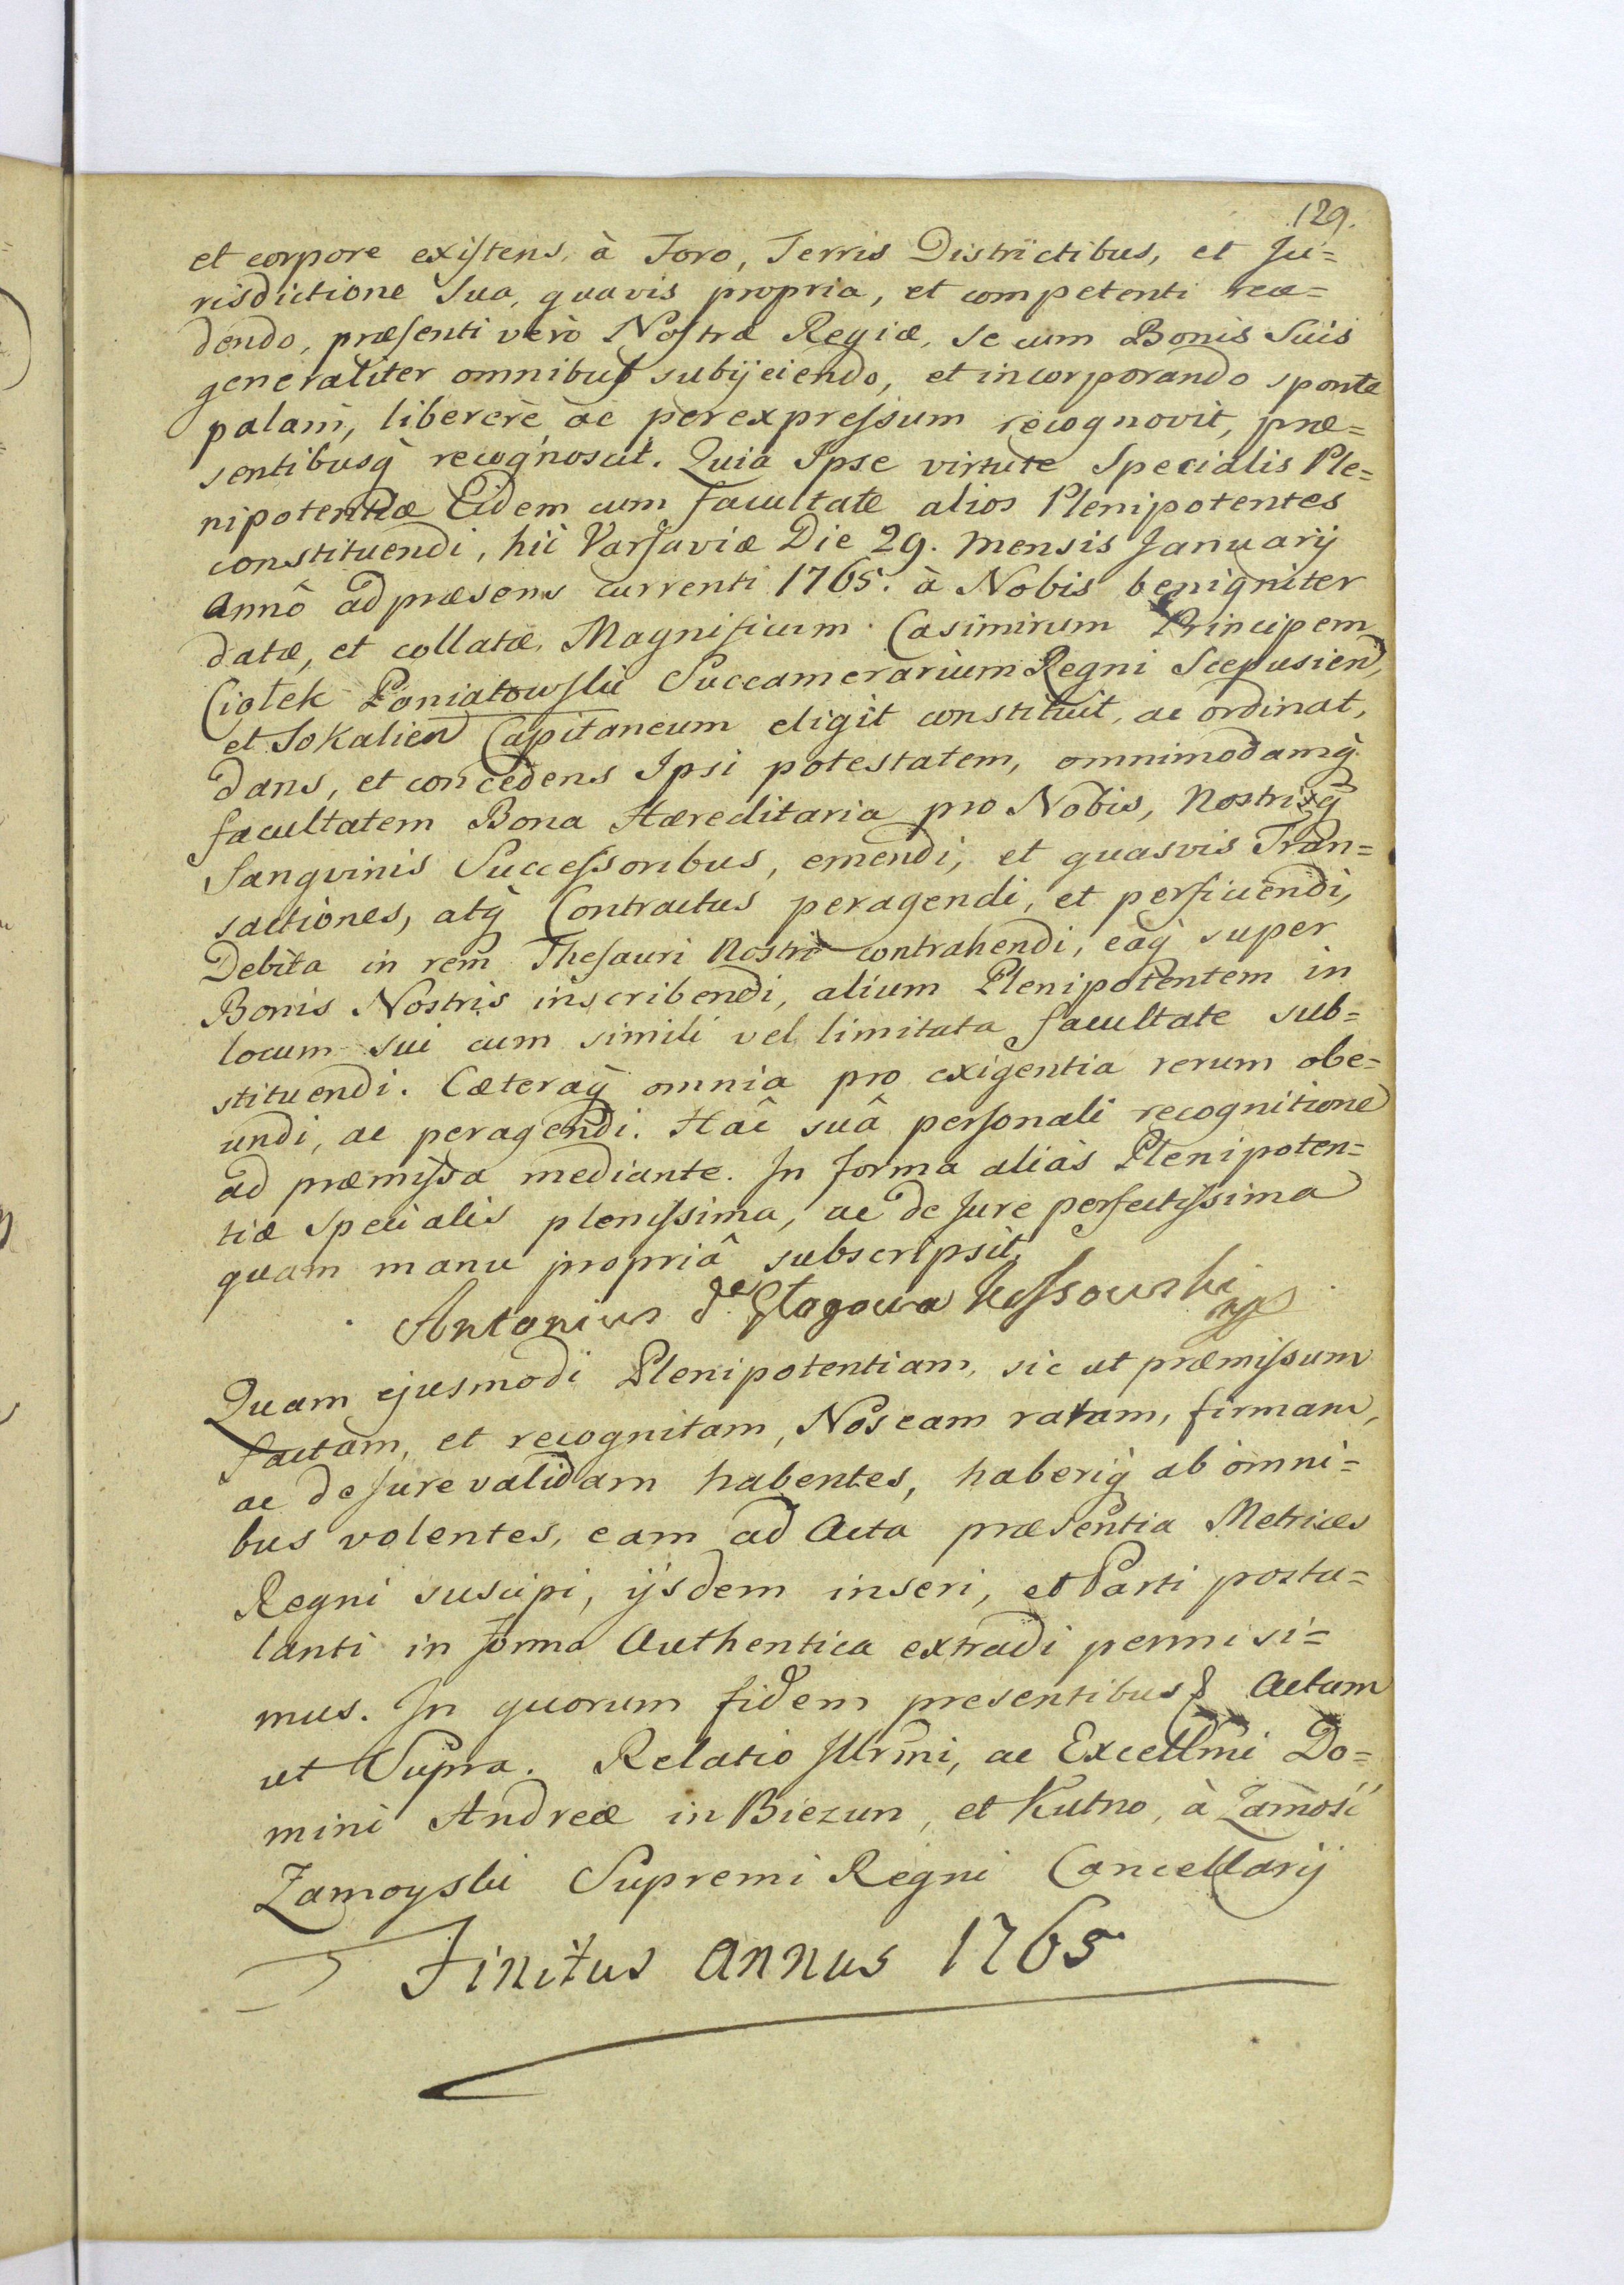 129.
et corpore existens, à Foro, Terris Districtibus, et Ju=
risdictione Sua, quavis propria, et competenti rece=
dendo, præsenti verò Nostræ Regiæ, se cum Bonis Suis
generaliter omnibus subijciendo, et incorporando sponte
palam, liberè ac per expressum recognovit, præ=
sentibusq̀ recognoscit. Quia Ipse virtute Specialis Ple=
nipotentiæ Eidem cum facultate alios Plenipotentes
constituendi, hic Varsaviæ Die 29. Mensis Januarij
Annô ad præsens currenti 1765. à Nobis benigniter
datæ, et collatæ, Magnificum Casimirum Principem
Ciołek Poniatowski Succamerarium Regni Scepusien,
et Sokalien Capitaneum eligit constituit, ac ordinat,
dans, et concedens Ipsi potestatem, omnimodamq̀
facultatem Bona Hæreditaria pro Nobis, Nostriq̀
Sangvinis Successoribus, emendi, et quasvis Tran=
sactiones, atq̀ Contractus peragendi, et perficiendi,
Debita in rem Thesauri Nostri contrahendi, eaq̀ super
Bonis Nostris inscribendi, alium Plenipotentem in
locum sui cum simili vel limitata facultate sub=
stituendi. Cæteraq̀ omnia pro exigentia rerum obe=
undi, ac peragendi. Hac suâ personali recognitione
ad præmissa mediante. In forma aliàs Plenipoten=
tiæ Specialis plenissima, ac de Jure perfectissima
quam manu propriâ subscripsit,
Antonius de Głogowa Kossowski mp
Quam ejusmodi Plenipotentiam, sic ut præmissum
factam, et recognitam, Nos eam ratam, firmam,
ac de Jure validam habentes, haberiq̀ ab omni=
bus volentes, eam ad Acta præsentia Metrices
Regni suscipi, ijsdem inseri, et Parti postu=
lanti in forma Authentica extradi permisi=
mus. In quorum fidem presentibus Actum
ut Supra. Relatio Illrmi, ac Excellmi Do=
mini Andreæ in Biezun, et Kutno, à Zamość
Zamoyski Supremi Regni Cancellarij
Finitus Annus 1765